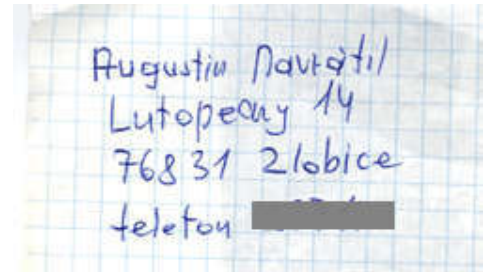 Augustin Navrátil
Lutopecny 14
76831 Zlobice
telefon